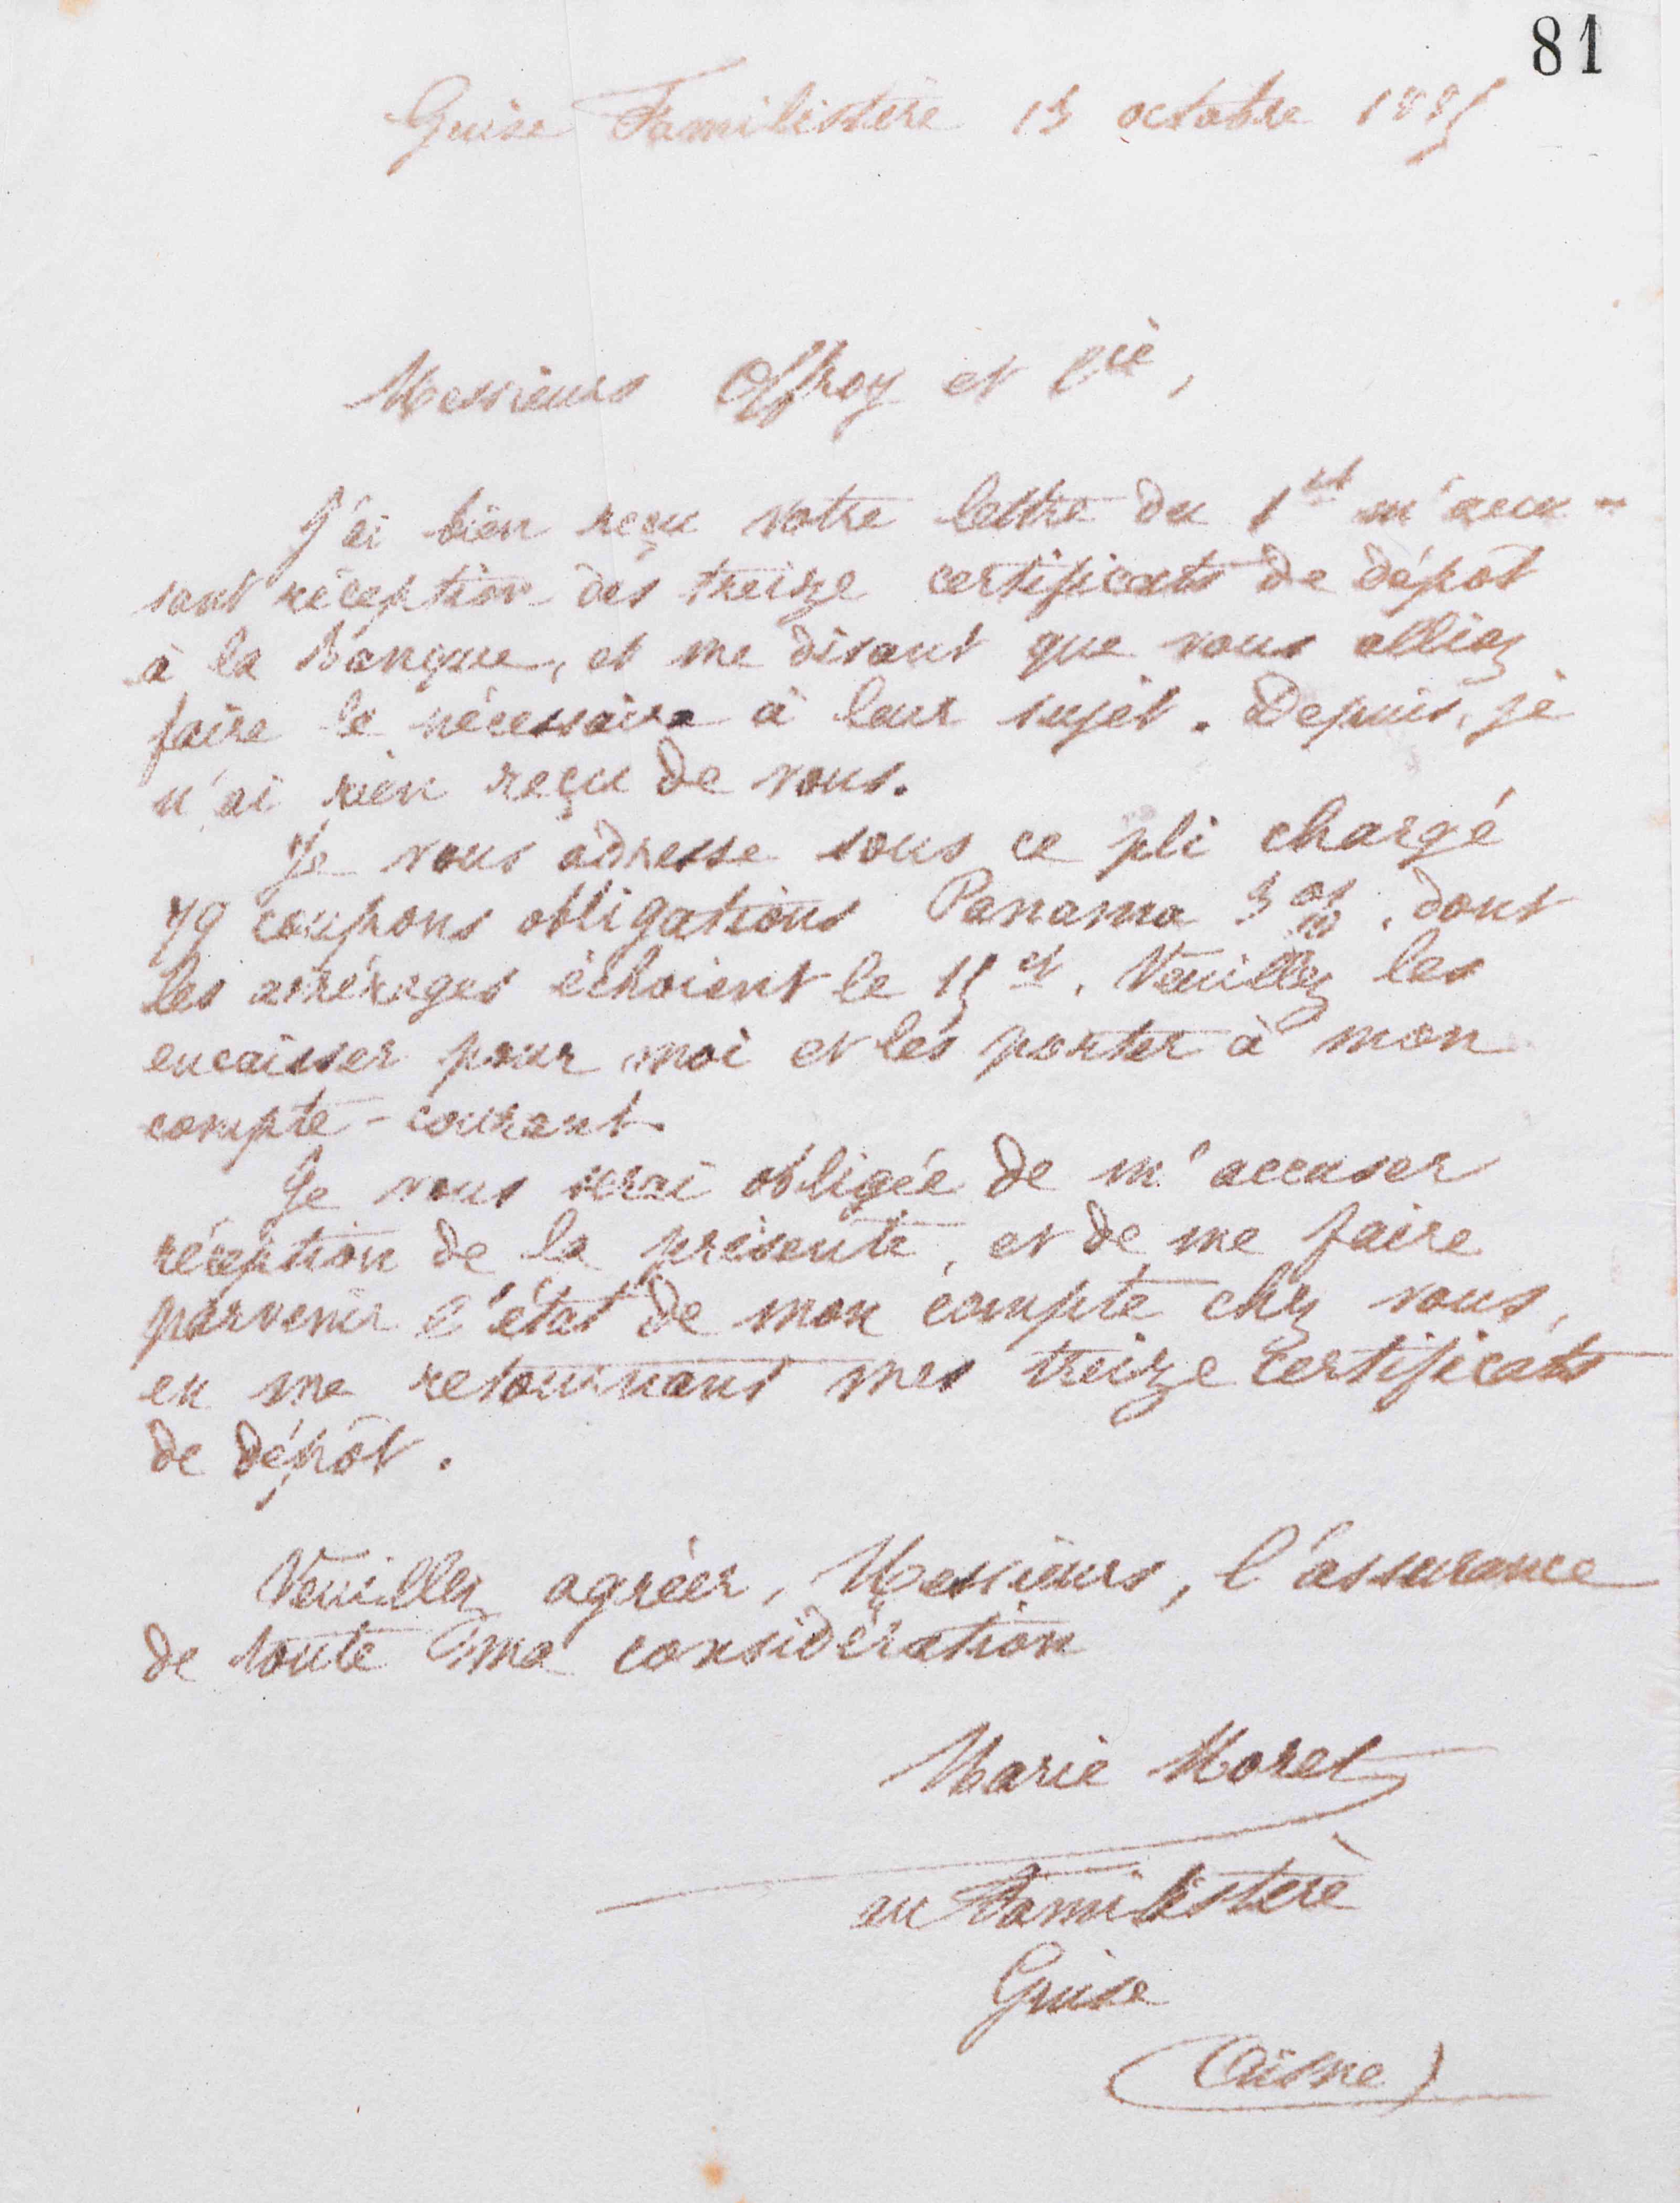 81
Guise Familistère 13 octobre 1885
Messieurs Offroy et Cie,
J'ai bien reçu votre lettre du 1er m'accu-
sant réception des treize certificats de dépôt
à la Banque, et me disant que vous alliez
faire le nécessaire à leur sujet. Depuis, je
n'ai rien reçu de vous.
Je vous adresse sous ce pli chargé
79 coupons obligations Panama 3 %, dont
les arrérages échoient le 15 ct. Veuillez les
encaisser pour moi et les porter à mon
compte-courant.
Je vous serai obligée de m'accuser
réception de la présente, et de me faire
parvenir l'état de mon compte chez vous,
en me retournant mes treize certificats
de dépôt.
Veuillez agréer, Messieurs, l'assurance
de toute ma considération
Marie Moret
au Familistère
Guise
(Aisne)